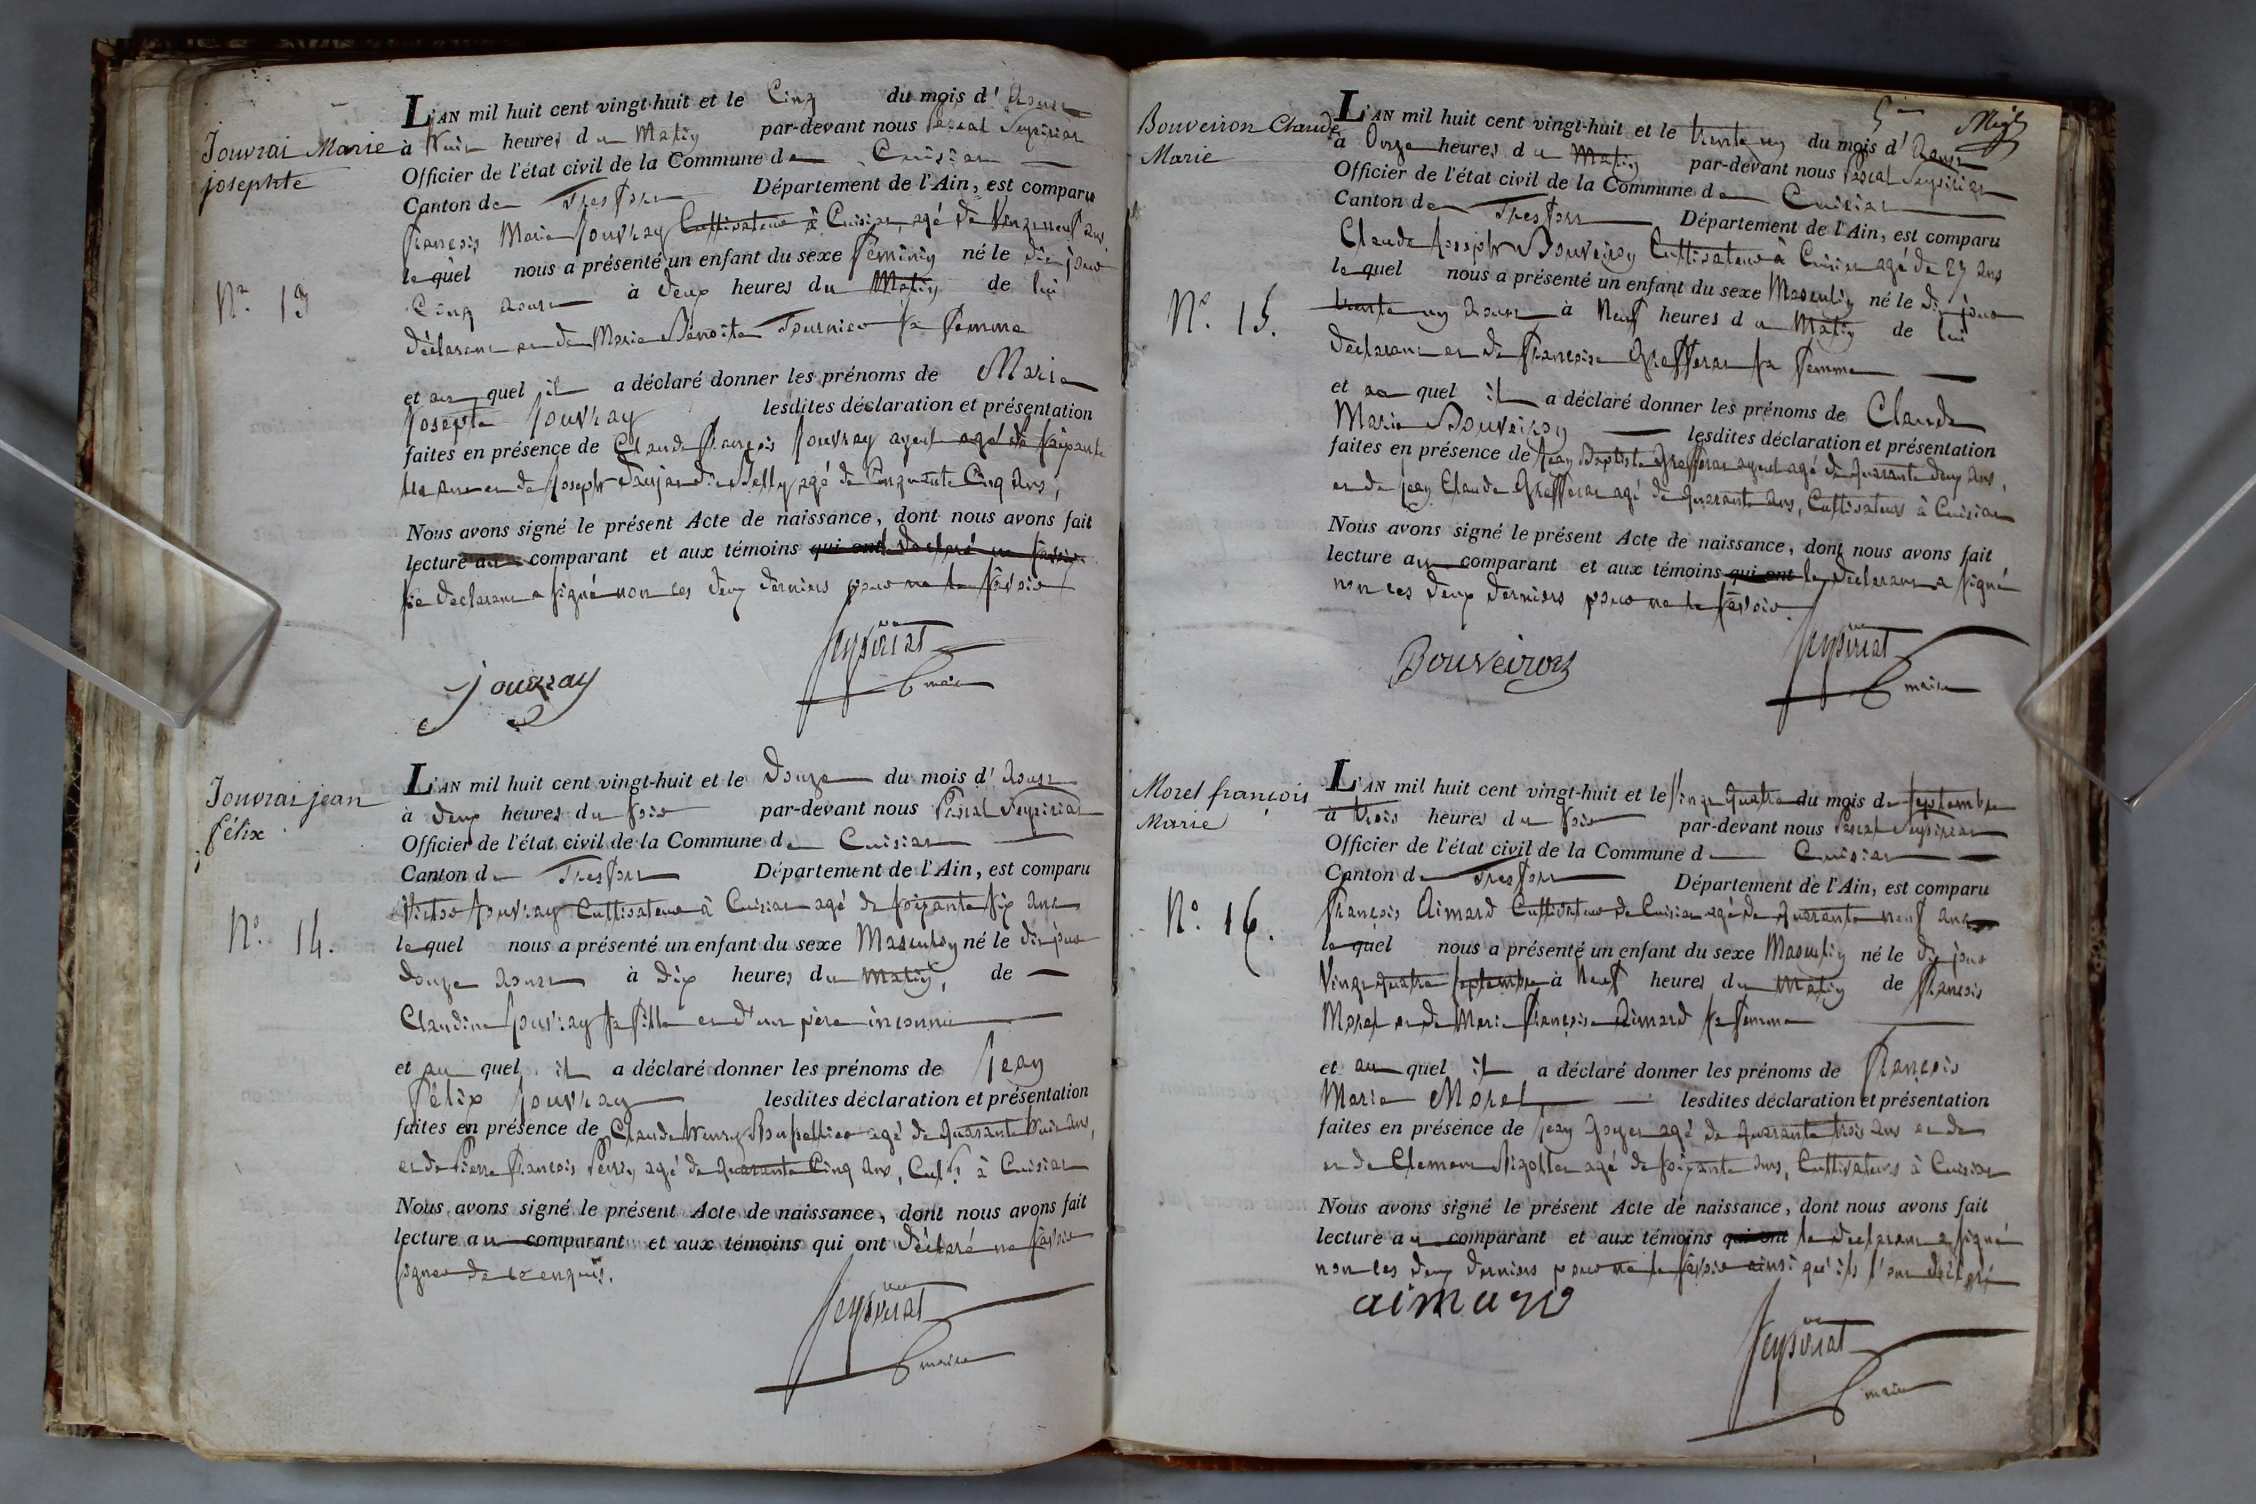 Jouvrai Marie
josephte
N° 13
L'AN mil huit cent vingt-huit et le Cinq du mois d'Aoust
à huit heures du Matin par-devant nous Pascal Seysiriat
Officier de l'état civil de la Commune de Cuisiat
Canton de Treffort Département de l'Ain, est comparu
François Marie Jouvray Cultivateur à Cuisiat agé de Vingt neuf ans
lequel nous a présenté un enfant du sexe féminin né le dit jour
Cinq Aoust à deux heures du Matin de lui
déclarant et de Marie Benoite Fournier sa femme
et au quel il a déclaré donner les prénoms de Marie
Josephte Jouvray lesdites déclaration et présentation
faites en présence de Claude François Jouvray ayeul agé de soixante
ans et de Joseph dit agé de Cinquante Cinq ans,
Nous avons signé le présent Acte de naissance, dont nous avons fait
lecture au comparant et aux témoins qui ont déclaré ne savoir
Le déclarant a signé non les deux derniers pour ne le savoir
Jouvray
Seysiriat
maire
Jouvrai jean
félix
N° 14.
L'AN mil huit cent vingt-huit et le Douze du mois d'Aoust
à deux heures du soir par-devant nous Pascal Seysiriat
Officier de l'état civil de la Commune de Cuisiat
Canton de Treffort Département de l'Ain, est comparu
Victor Jouvray Cultivateur à Cuisiat agé de soixante six ans
lequel nous a présenté un enfant du sexe Masculin né le dit jour
douze Aoust à dix heures du matin, de
Claudine Jouvray sa fille et d'un père inconnu
et au quel il a déclaré donner les prénoms de Jean
Félix Jouvray lesdites déclaration et présentation
faites en présence de Claude henry agé de quarante huit ans,
et de Pierre François Perrin agé de quarante Cinq ans, Cult.rs à Cuisiat
Nous avons signé le présent Acte de naissance, dont nous avons fait
lecture au comparant et aux témoins qui ont déclaré ne savoir
signer de ce enquis.
Seysiriat
maire
5
Bouveiron Claude
Marie
N° 15.
L'AN mil huit cent vingt-huit et le trente un du mois d'Aoust
à Onze heures du Matin par-devant nous Pascal Seysiriat
Officier de l'état civil de la Commune de Cuisiat
Canton de Treffort Département de l'Ain, est comparu
Claude Joseph Bouveiron Cultivateur à Cuisiat agé de 27 ans
lequel nous a présenté un enfant du sexe Masculin né le dit jour
trente un Aoust à Neuf heures du Matin de lui
déclarant et de Françoise Grefferat sa femme
et au quel il a déclaré donner les prénoms de Claude
Marie Bouveiron lesdites déclaration et présentation
faites en présence de Jean Baptiste Grefferat ayeul agé de quarante deux ans,
et de Jean Claude Grefferat agé de quarante ans, Cultivateurs à Cuisiat
Nous avons signé le présent Acte de naissance, dont nous avons fait
lecture au comparant et aux témoins qui ont le déclarant a signé
non les deux derniers pour ne le savoir.
Bouveiron
Seysiriat
maire
Morel françois
Marie
N° 16.
L'AN mil huit cent vingt-huit et le Vingt quatre du mois de septembre
à trois heures du soir par-devant nous Pascal Seysiriat
Officier de l'état civil de la Commune de Cuisiat
Canton de Treffort Département de l'Ain, est comparu
François Aimard Cultivateur de Cuisiat agé de quarante neuf ans
lequel nous a présenté un enfant du sexe Masculin né le dit jour
Vingt quatre septembre à Neuf heures du Matin de François
Morel et de Marie Françoise Aimard sa femme
et au quel il a déclaré donner les prénoms de François
Marie Morel lesdites déclaration et présentation
faites en présence de Jean Goyet agé de quarante trois ans et de
et de Clement Rigollet agé de soixante ans, Cultivateurs à Cuisiat
Nous avons signé le présent Acte de naissance, dont nous avons fait
lecture au comparant et aux témoins qui ont le déclarant a signé
non les deux derniers pour ne le savoir ainsi qu'ils l'ont déclaré
aimard
Seysiriat
maire